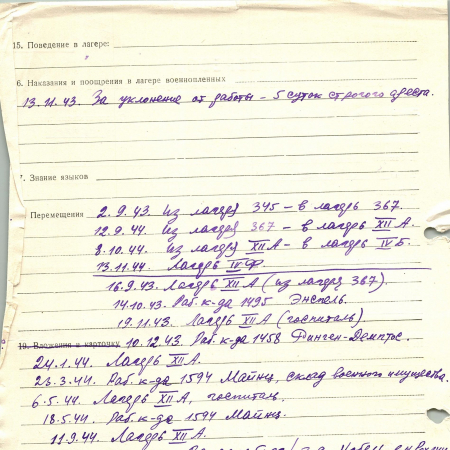 15. Поведение в лагере:
6. Наказания и поощрения в лагере военнопленных
13.11.43. За уклонение от работы – 5 суток строгого ареста.
7. Знание языков
Перемещения 2.9.43. Из лагеря 345 – в лагерь 367.
12.9.44. Из лагеря 367 – в лагерь XII А.
8.10.44. Из лагеря XII А – в лагерь IV Б.
13.11.44. Лагерь IV Ф.
16.9.43. Лагерь XII А (из лагеря 367).
14.10.43. Раб. к-да 1495 Энспель.
19.11.43. Лагерь XII А (госпиталь).
19. Вложения в карточку 10.12.43. Раб. к-да 1458 Финген-Демптос.
24.1.44. Лагерь XII А.
23.3.44. Раб. к-да 1594 Майнц, склад военного имущества.
6.5.44. Лагерь XII А, госпиталь.
18.5.44. Раб. к-да 1594 Майнц.
11.9.44. Лагерь XII А.